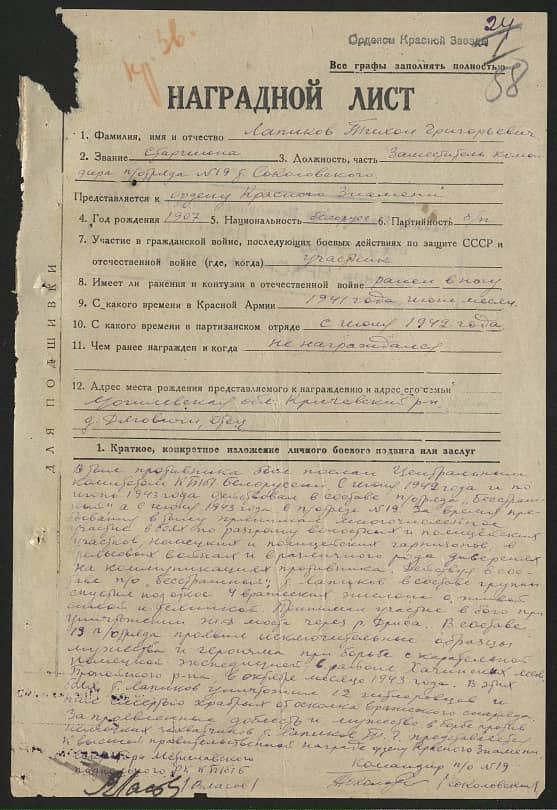 24
Орденом Красной Звезды
Все графы заполнять полностью
58
НАГРАДНОЙ ЛИСТ
1. Фамилия, имя и отчество Лапиков Тихон Григорьевич
2. Звание старшина 3. Должность, часть Заместитель коман-
дира п/отряда №19 т. Соколовского
Представляется к ордену Красного Знамени
4. Год рождения 1907 5. Национальность белорус 6. Партийность б/п
7. Участие в гражданской войне, последующих боевых действиях по защите СССР и
отечественной войне (где, когда) участник
8. Имеет ли ранения и контузии в отечественной войне ранен в ногу
9. С какого времени в Красной Армии 1941 года, июнь месяц
10. С какого времени в партизанском отряде с июня 1942 года
11. Чем ранее награжден и когда не награждался
12. Адрес места рождения представляемого к награждению и адрес его семьи
Могилевская обл. Кричевский р-н
д. отец
ДЛЯ ПОДШИВКИ
1. Краткое, конкретное изложение личного боевого подвига или заслуг
В тыл противника был послан Центральным
Комитетом КП(б) Белоруссии. С июня 1942 года и по
июнь 1943 года действовал в составе п/отряда "Бесстраш-
ный" а с июня 1943 года в п/отряде №19. За время пре-
бывания в тылу принимал многочисленное
участие в боях по разгрому волостных и полицейских
участков, немецких и полицейских гарнизонов, в
рельсовых войнах и различного рода диверсиях
на коммуникациях противника. Действуя в сос-
таве п/о "Бесстрашный", т. Лапиков в составе группы
спустил под откос 4 вражеских эшелона с живой
силой и техникой. Принимал участие в бою при
уничтожении жел. моста через р. В составе
19 п/отряда проявил исключительные образцы
мужества и героизма при борьбе с карательной
немецкой экспедицией в районе лесов
Пропойского р-на, в октябре месяце 1943 года. В этих
боях т. Лапиков уничтожил 12 гитлеровцев и
пал смертью храбрых от осколка вражеского снаряда.
За проявленные доблесть и мужество в борьбе против
немецких захватчиков т. Лапиков Т. Г. представляется
к высокой правительственной награде ордену Красного Знамени
Секретарь
подпольного РК КП(б)Б Командир п/о №19
(Власов) (Соколовский)